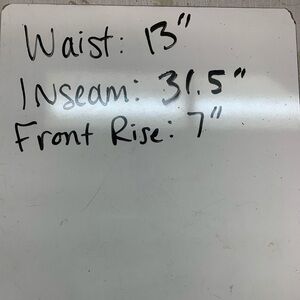 Waist: 13"
INseam: 31.5"
Front Rise: 7"